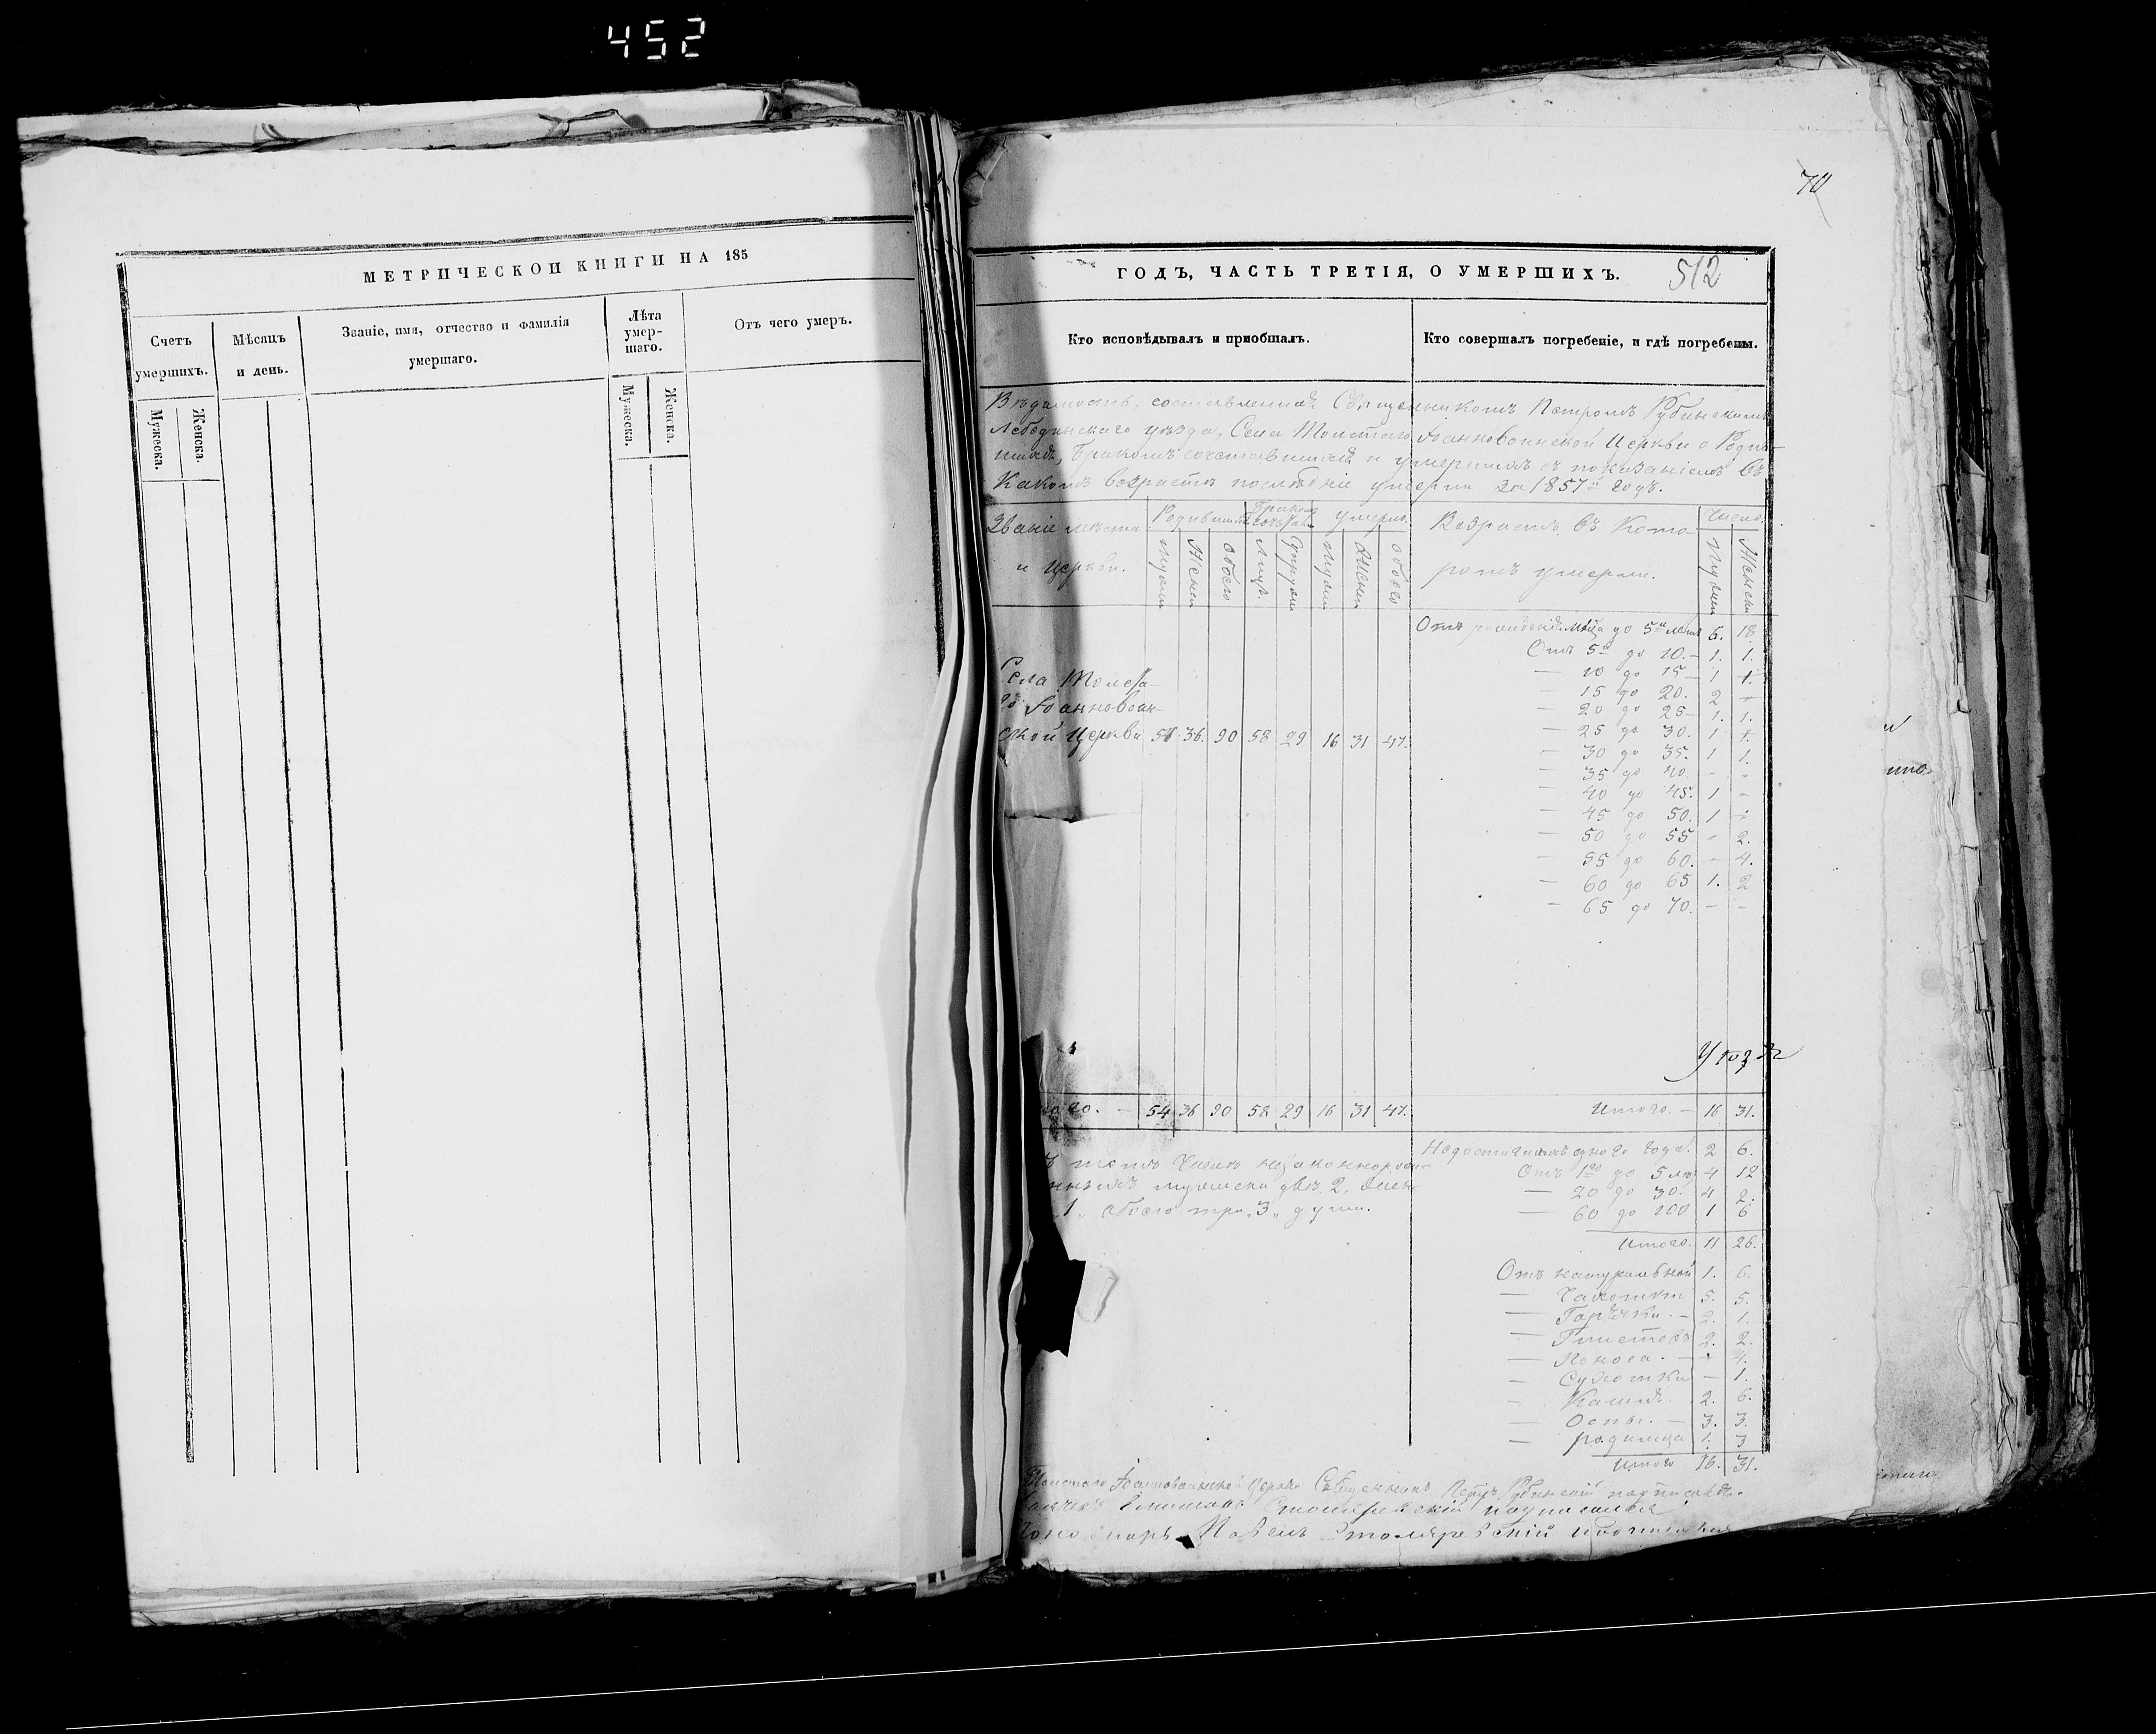 452
МЕТРИЧЕСКОЙ КНИГИ НА 185
Счетъ умершихъ.
Мужеска.
Женска.
Мѣсяцъ и день.
Званіе, имя, отчество и фамилія
умершаго.
Лѣта
умер-
шаго.
Мужеска.
Женска.
Отъ чего умеръ.
70
ГОДЪ, ЧАСТЬ ТРЕТІЯ, О УМЕРШИХЪ.
512
Кто исповѣдывалъ и пріобщалъ.
Кто совершалъ погребеніе, и гдѣ погребены.
Вѣдомость, составленная Священникомъ Петромъ Рубинскимъ
Лебединскаго уѣзда, Села Толстаго Іоанновоинской Церкви о Родив-
шихъ, бракомъ сочетавшихъ и умершихъ съ показаніемъ въ
какомъ возрастѣ послѣдніе умерли за 1857й годъ.
Званіе мѣста
и Церкви.
Родившихъ
Умерло.
Мужски
Женски
обоего
Лицъ
Супруж
Мужски
Женски
обоего
Возрастъ въ кото-
ромъ умерли.
Число.
Мужски
Женски
Отъ рожденія до 5и лѣтъ 6. 18
Отъ 5и до 10. 1. 1.
— 10 до 15 1 -
— 15 до 20. 2 -
— 20 до 25 1. 1.
— 25 до 30. 1 -
— 30 до 35. 1 1.
— 35 до 40. - -
— 40 до 45. 1 -
— 45 до 50. 1 -
— 50 до 55 - 2.
— 55 до 60. - 4.
— 60 до 65 1. 2
— 65 до 70. - -
Села Толста-
го Іоанновоин-
ской Церкви 54 36. 90 58 29 16 31 47.
54 36 90 58 29 16 31 47.
Итого. — 16 31.
томъ числѣ незаконнорож-
мужески двѣ 2, женс-
1 обоего три „3„ души.
Недостигшихъ одного года. 2 6.
Отъ 1го до 5 лѣ 4 12
— 20 до 30. 4 2.
— 60 до 100 1 6
Итого. 11 26.
Отъ натуральной 1. 6.
— Чахотки 5. 5.
— Горячки. 2. 1.
— Глистовъ 2. 2.
— Поноса. - 4.
— Сухотки - 1.
— Кашля. 2. 6.
— Оспы. 3. 3.
— родимца 1. 3
Итого 16. 31.
Толстаго Іоанновоинской Церкви Священникъ Петръ Рубинскій подписался.
Столяревскій подписался
Павелъ Столяревскій подписался